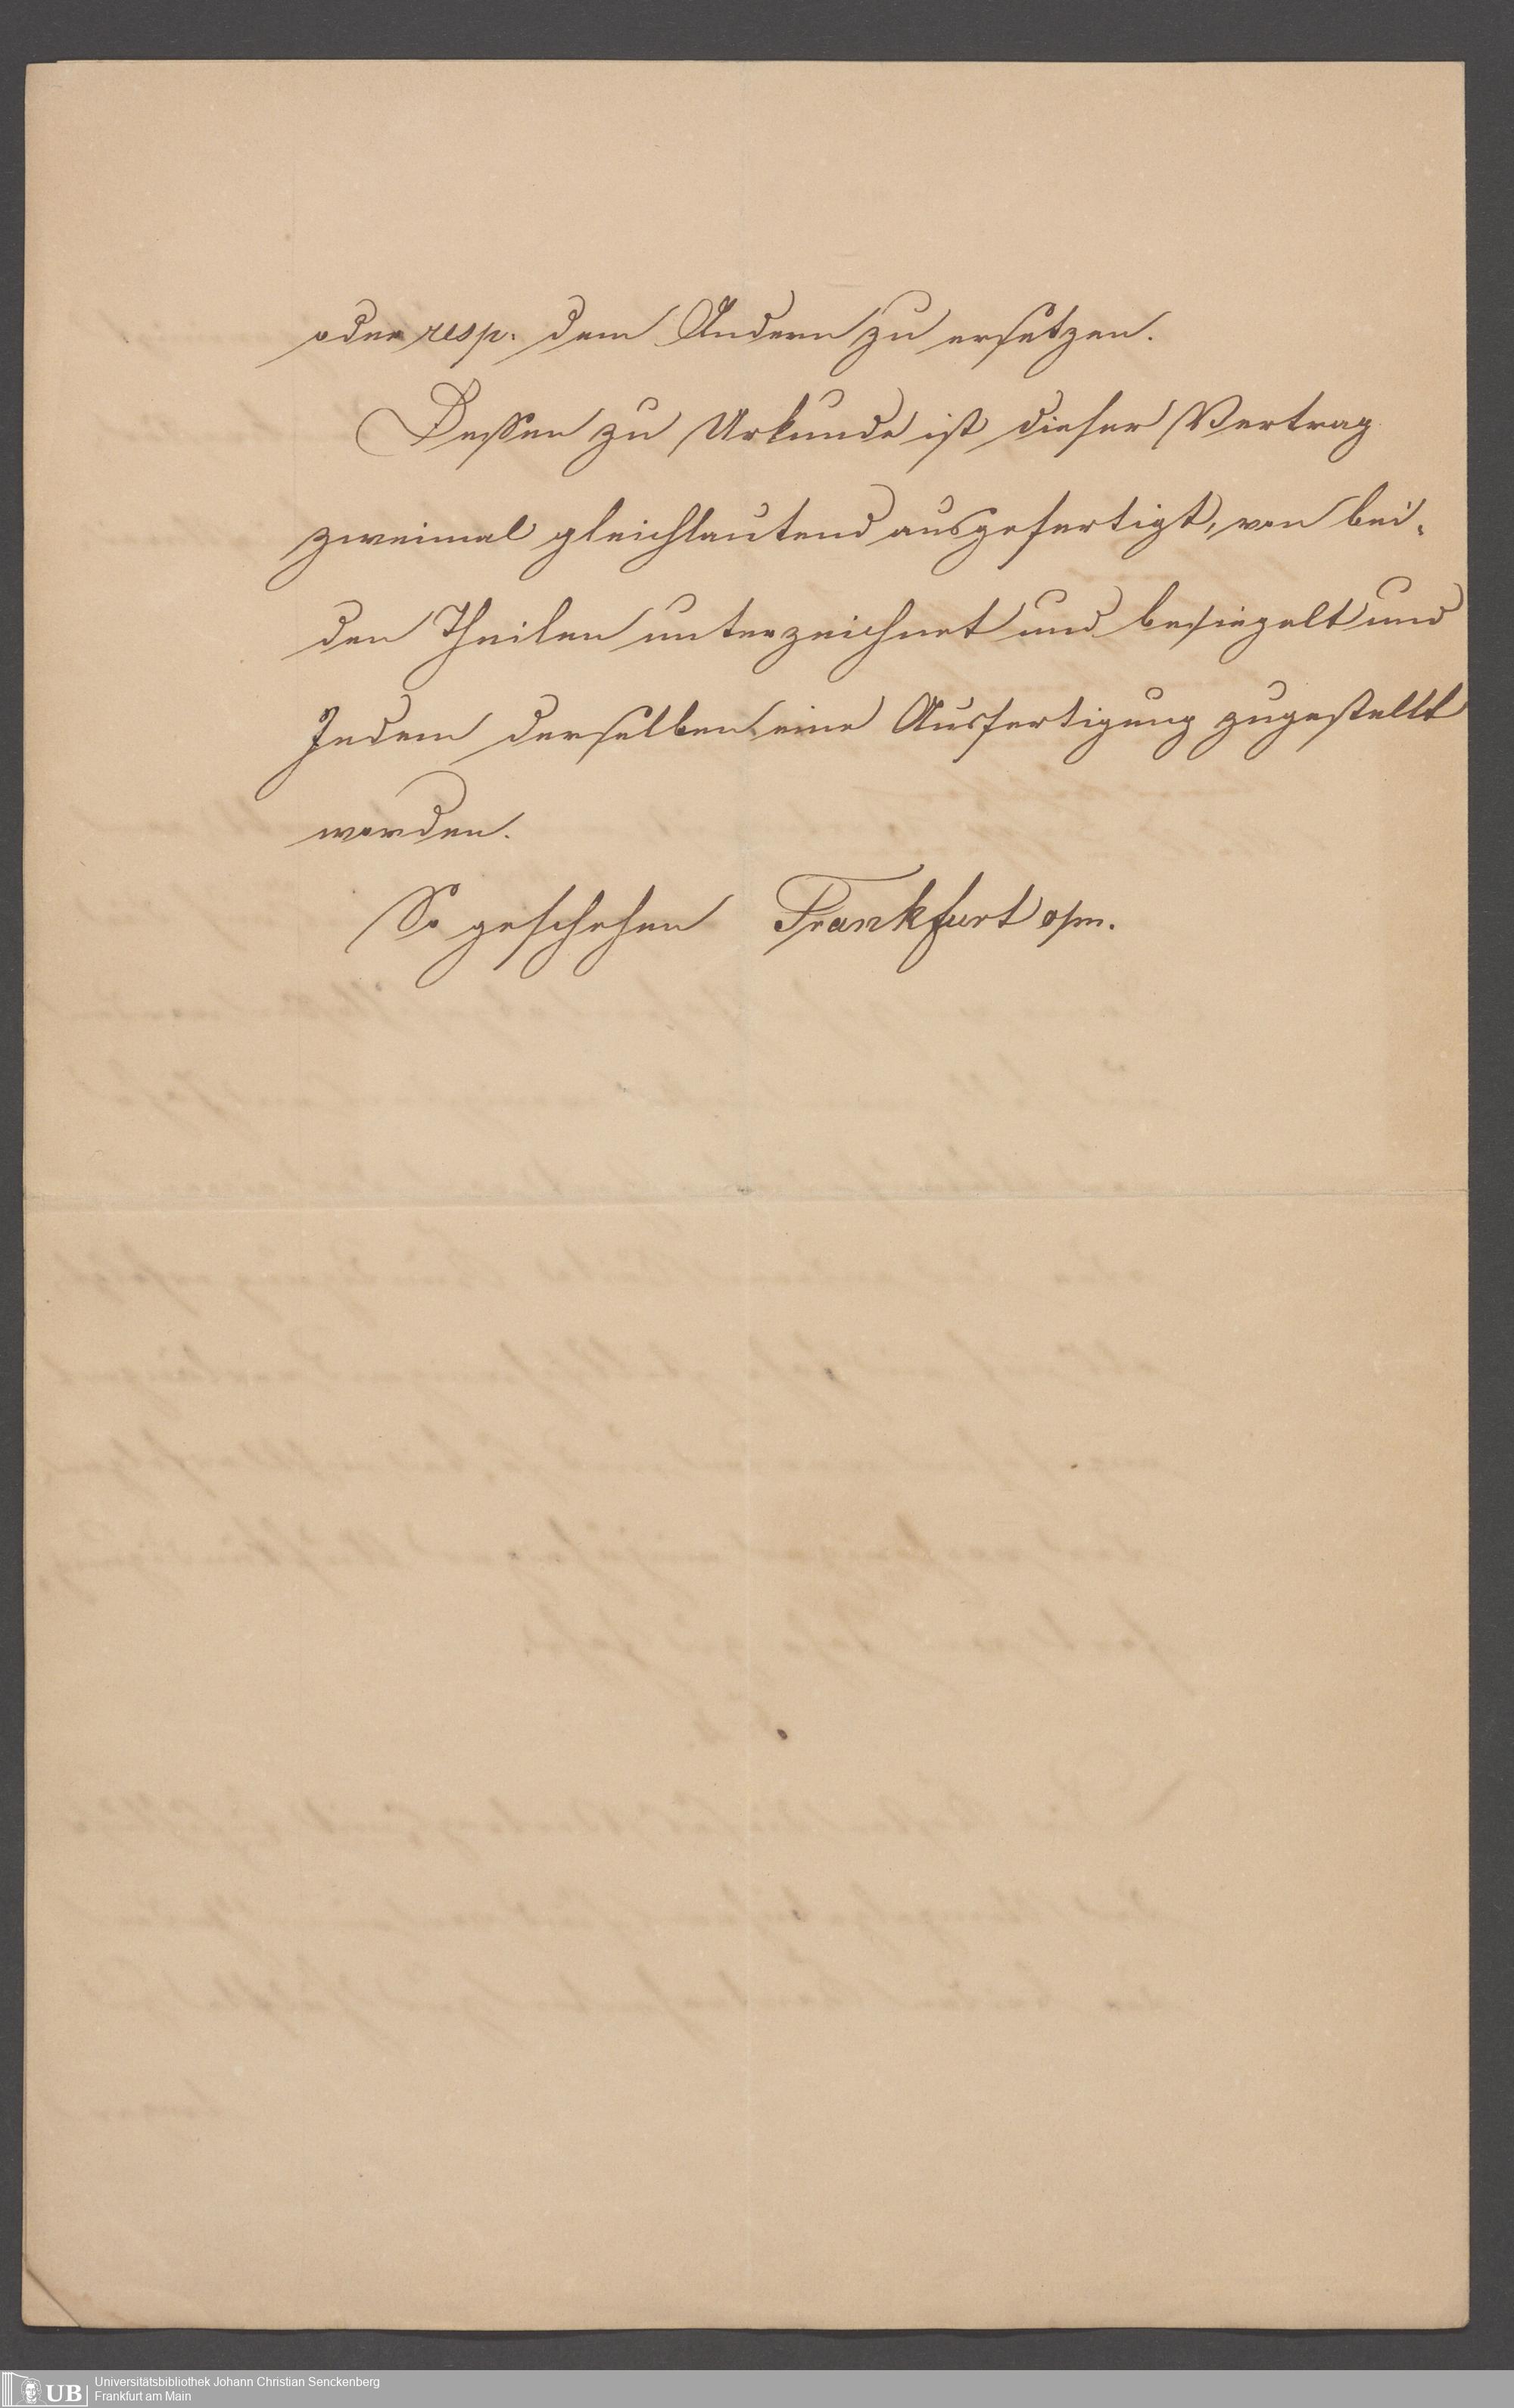 oder resp. dem Andern zu ersetzen.
Dessen zu Urkunde ist dieser Vertrag
zweimal gleichlautend ausgefertigt, von bei-
den Theilen unterzeichnet und besiegelt und
Jedem derselben eine Ausfertigung zugestellt
worden.
So geschehen Frankfurt a/m.
UB
Universitätsbibliothek Johann Christian Senckenberg
Frankfurt am Main